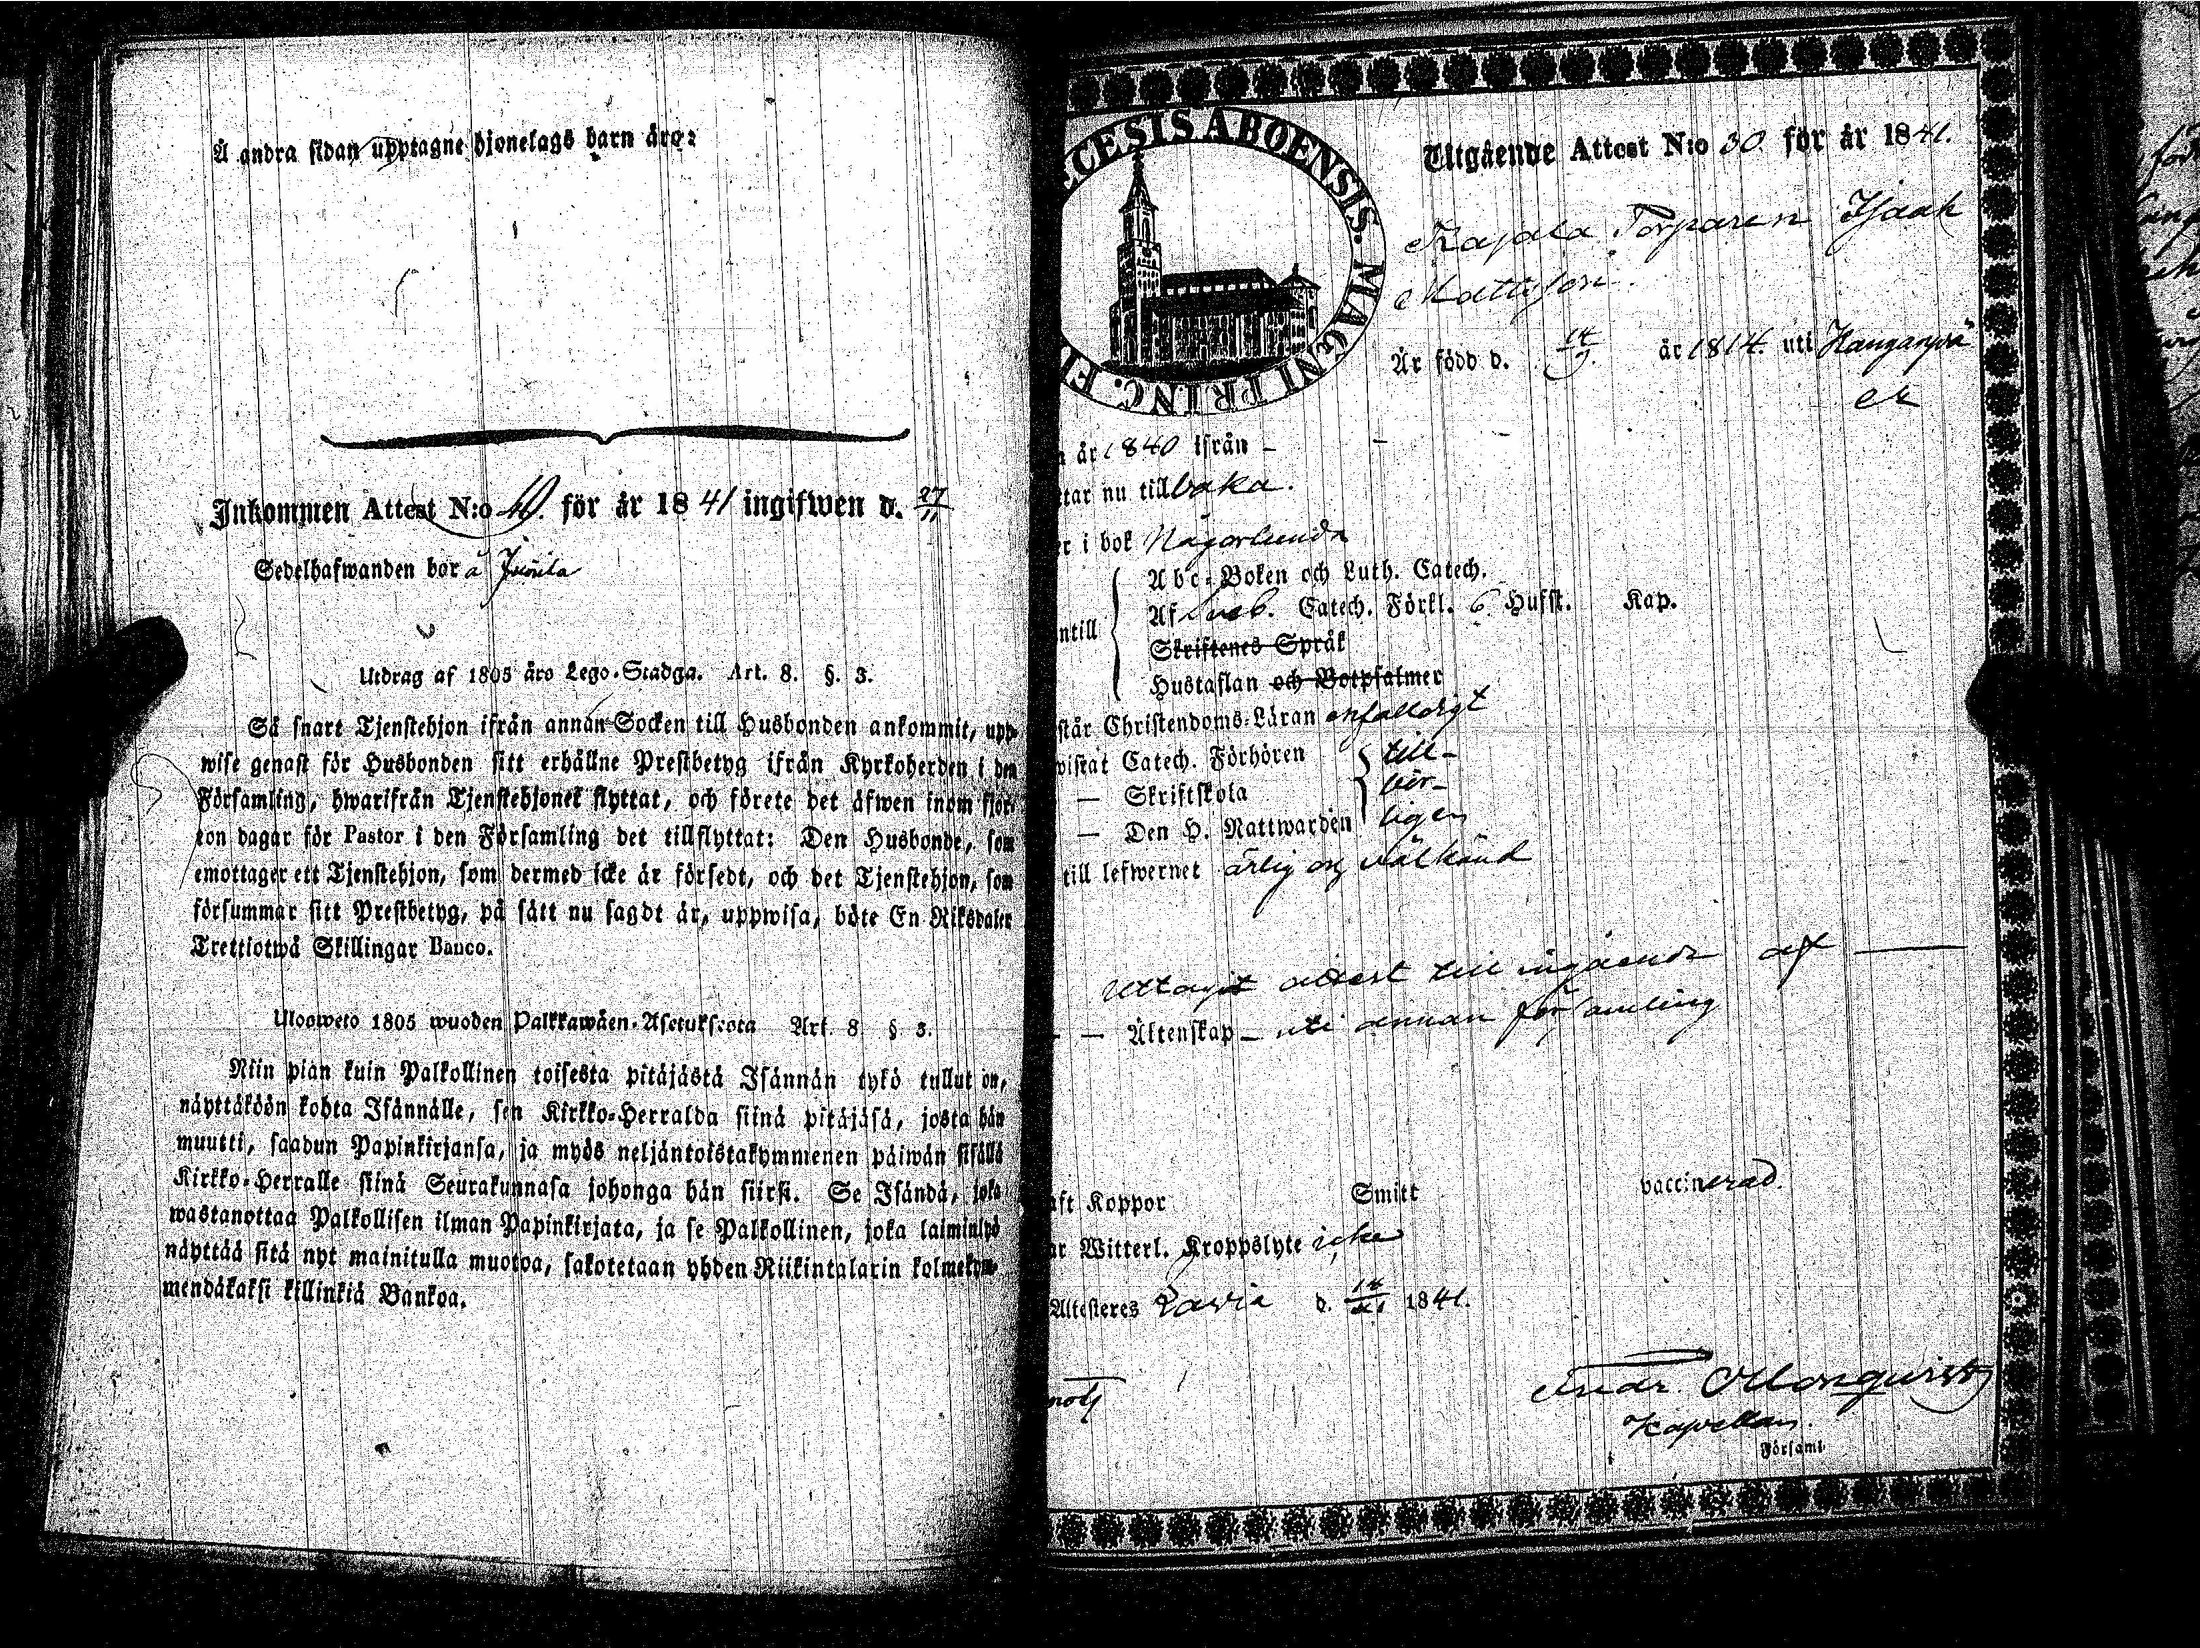 Å andra sidan upptagne hjonelags barn äro:
Inkommen Attest N:o 40. för år 1841 ingifwen d. 27/11
Sedelhafwanden bor å Junila
Utdrag af 1805 års Lego-Stadga. Art. 8. §. 3.
Så snart Tjenstehjon ifrån annan Socken till Husbonden ankommit, upp-
wise genast för Husbonden sitt erhållne Prestbetyg ifrån Kyrkoherden i den
Församling, hwarifrån Tjenstehjonet flyttat, och förete det äfwen inom fjor-
ton dagar för Pastor i den Församling det tillflyttat: Den Husbonde, som
emottager ett Tjenstehjon, som dermed icke är försedt, och det Tjenstehjon, som
försummar sitt Prestbetyg, på sätt nu sagdt är, uppwisa, böte En Riksdaler
Trettiotwå Skillingar Banco.
Ulosweto 1805 wuoden Palkkawäen-Asetuksesta Art. 8 §. 3.
Niin pian kuin Palkollinen toisesta pitäjästä Isännän tykö tullut on,
näyttäköön kohta Isännälle, sen Kirkko-Herralda siinä pitäjäsä, josta hän
muutti, saadun Papinkirjansa, ja myös neljäntoistakymmenen päiwän sisällä
Kirkko-Herralle siinä Seurakunnasa johonga hän siirsi. Se Isändä, joka
wastanottaa Palkollisen ilman Papinkirjata, ja se Palkollinen, joka laiminlyö
näyttää sitä nyt mainitulla muotoa, sakotetaan yhden Riikintalarin kolmekym-
mendäkaksi killinkiä Bankoa.
ECESIS ABOENSIS. MAGNI PRINC. FI
Utgående Attest N:o 30 för år 1841.
Torparen Isaak
Mattsson.
Är född d. 14/9. år 1814. uti Kangasperä
år 1840 ifrån -
tar nu tillbaka.
i bok Någorlunda
Abc-Boken och Luth. Catech.
Af Sveb. Catech. Förkl. 6 Hufst. Kap.
ntill
Skriftenes Språk
Hustaflan och Botpsalmer
står Christendoms-Läran enfaldigt
wistat Catech. Förhören till-
— Skriftskola bör-
— Den H. Nattwarden ligen
till lefwernet ärlig och välkänd
Uttagit attest till ingående af —
— Äktenskap — uti annan församling
aft Koppor Smitt vaccinerad.
ar Witterl. Kroppslyte icke
Attesteras Lavia d. 14/11 1841.
Andr. Malmquist
Kapellan.
Församl.